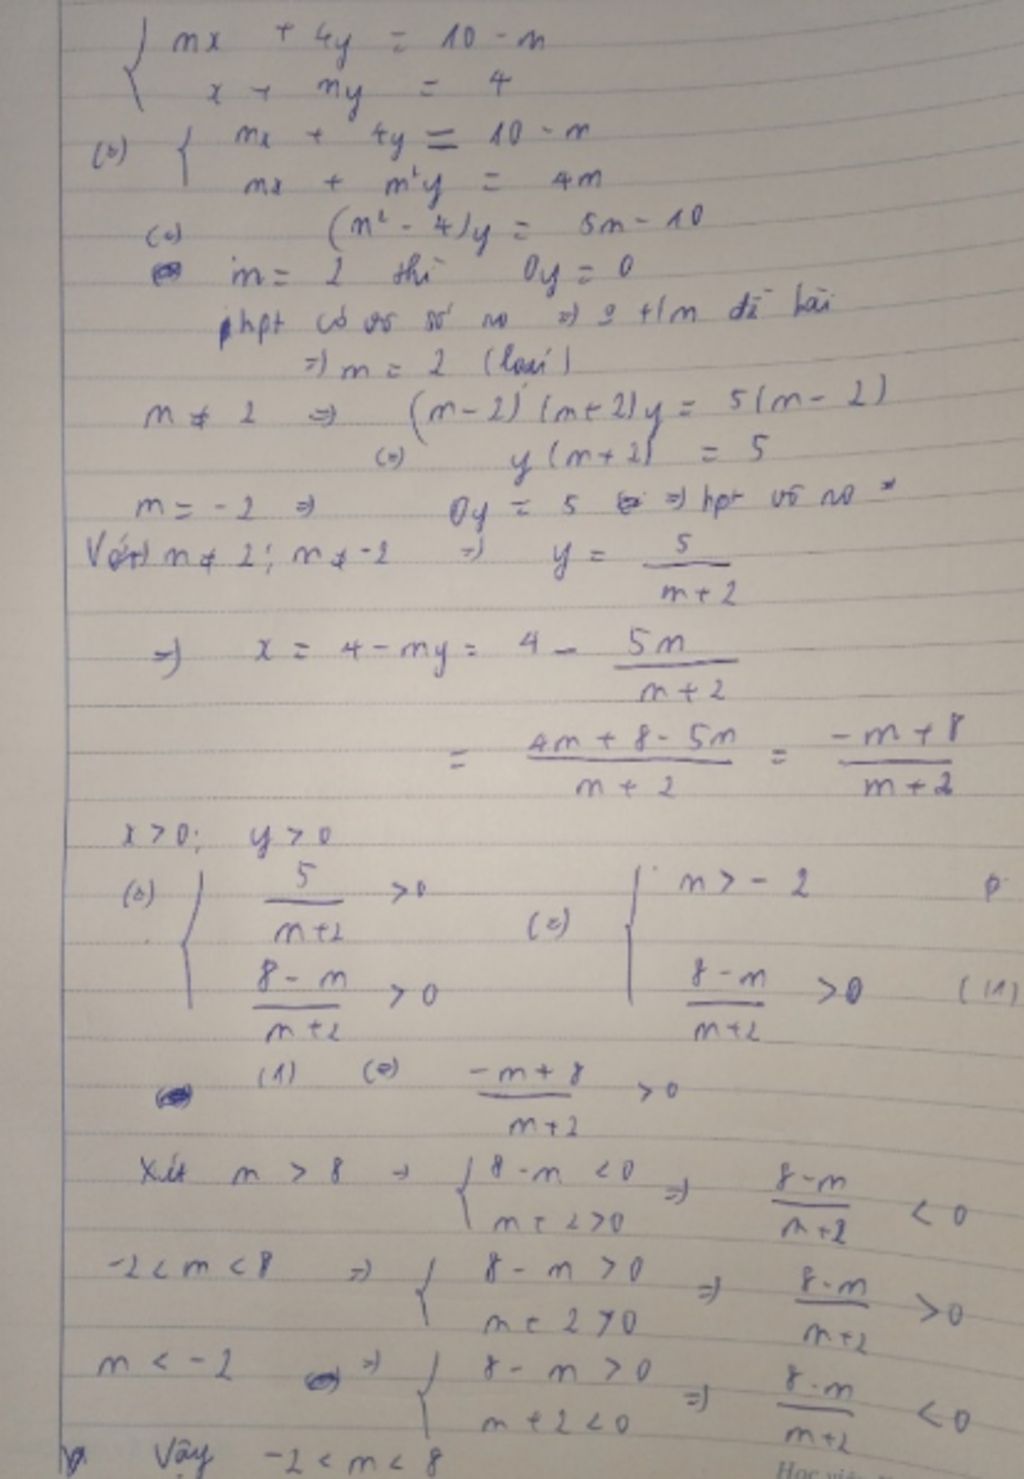 { mx + 4y = 10 - m
x + my = 4
(=) { mx + 4y = 10 - m
mx + m²y = 4m
(=) (m² - 4)y = 5m - 10
m = 2 thì 0y = 0
hpt có vô số no => t/m đề bài
=> m = 2 (loại)
m ≠ 2 => (m - 2)(m + 2)y = 5(m - 2)
(=) y(m + 2) = 5
m = -2 => 0y = 5 => hpt vô no
Với m ≠ 2; m ≠ -2 => y = 5/(m + 2)
=> x = 4 - my = 4 - 5m/(m + 2)
= (4m + 8 - 5m)/(m + 2) = (-m + 8)/(m + 2)
x > 0; y > 0
(=) { 5/(m+2) > 0 (=) { m > -2
(8 - m)/(m+2) > 0 (8 - m)/(m+2) > 0 (1)
(1) (=) (-m + 8)/(m+2) > 0
Xét m > 8 => { 8 - m < 0 => (8 - m)/(m+2) < 0
m + 2 > 0
-2 < m < 8 => { 8 - m > 0 => (8 - m)/(m+2) > 0
m + 2 > 0
m < -2 => { 8 - m > 0 => (8 - m)/(m+2) < 0
m + 2 < 0
Vậy -2 < m < 8
Học